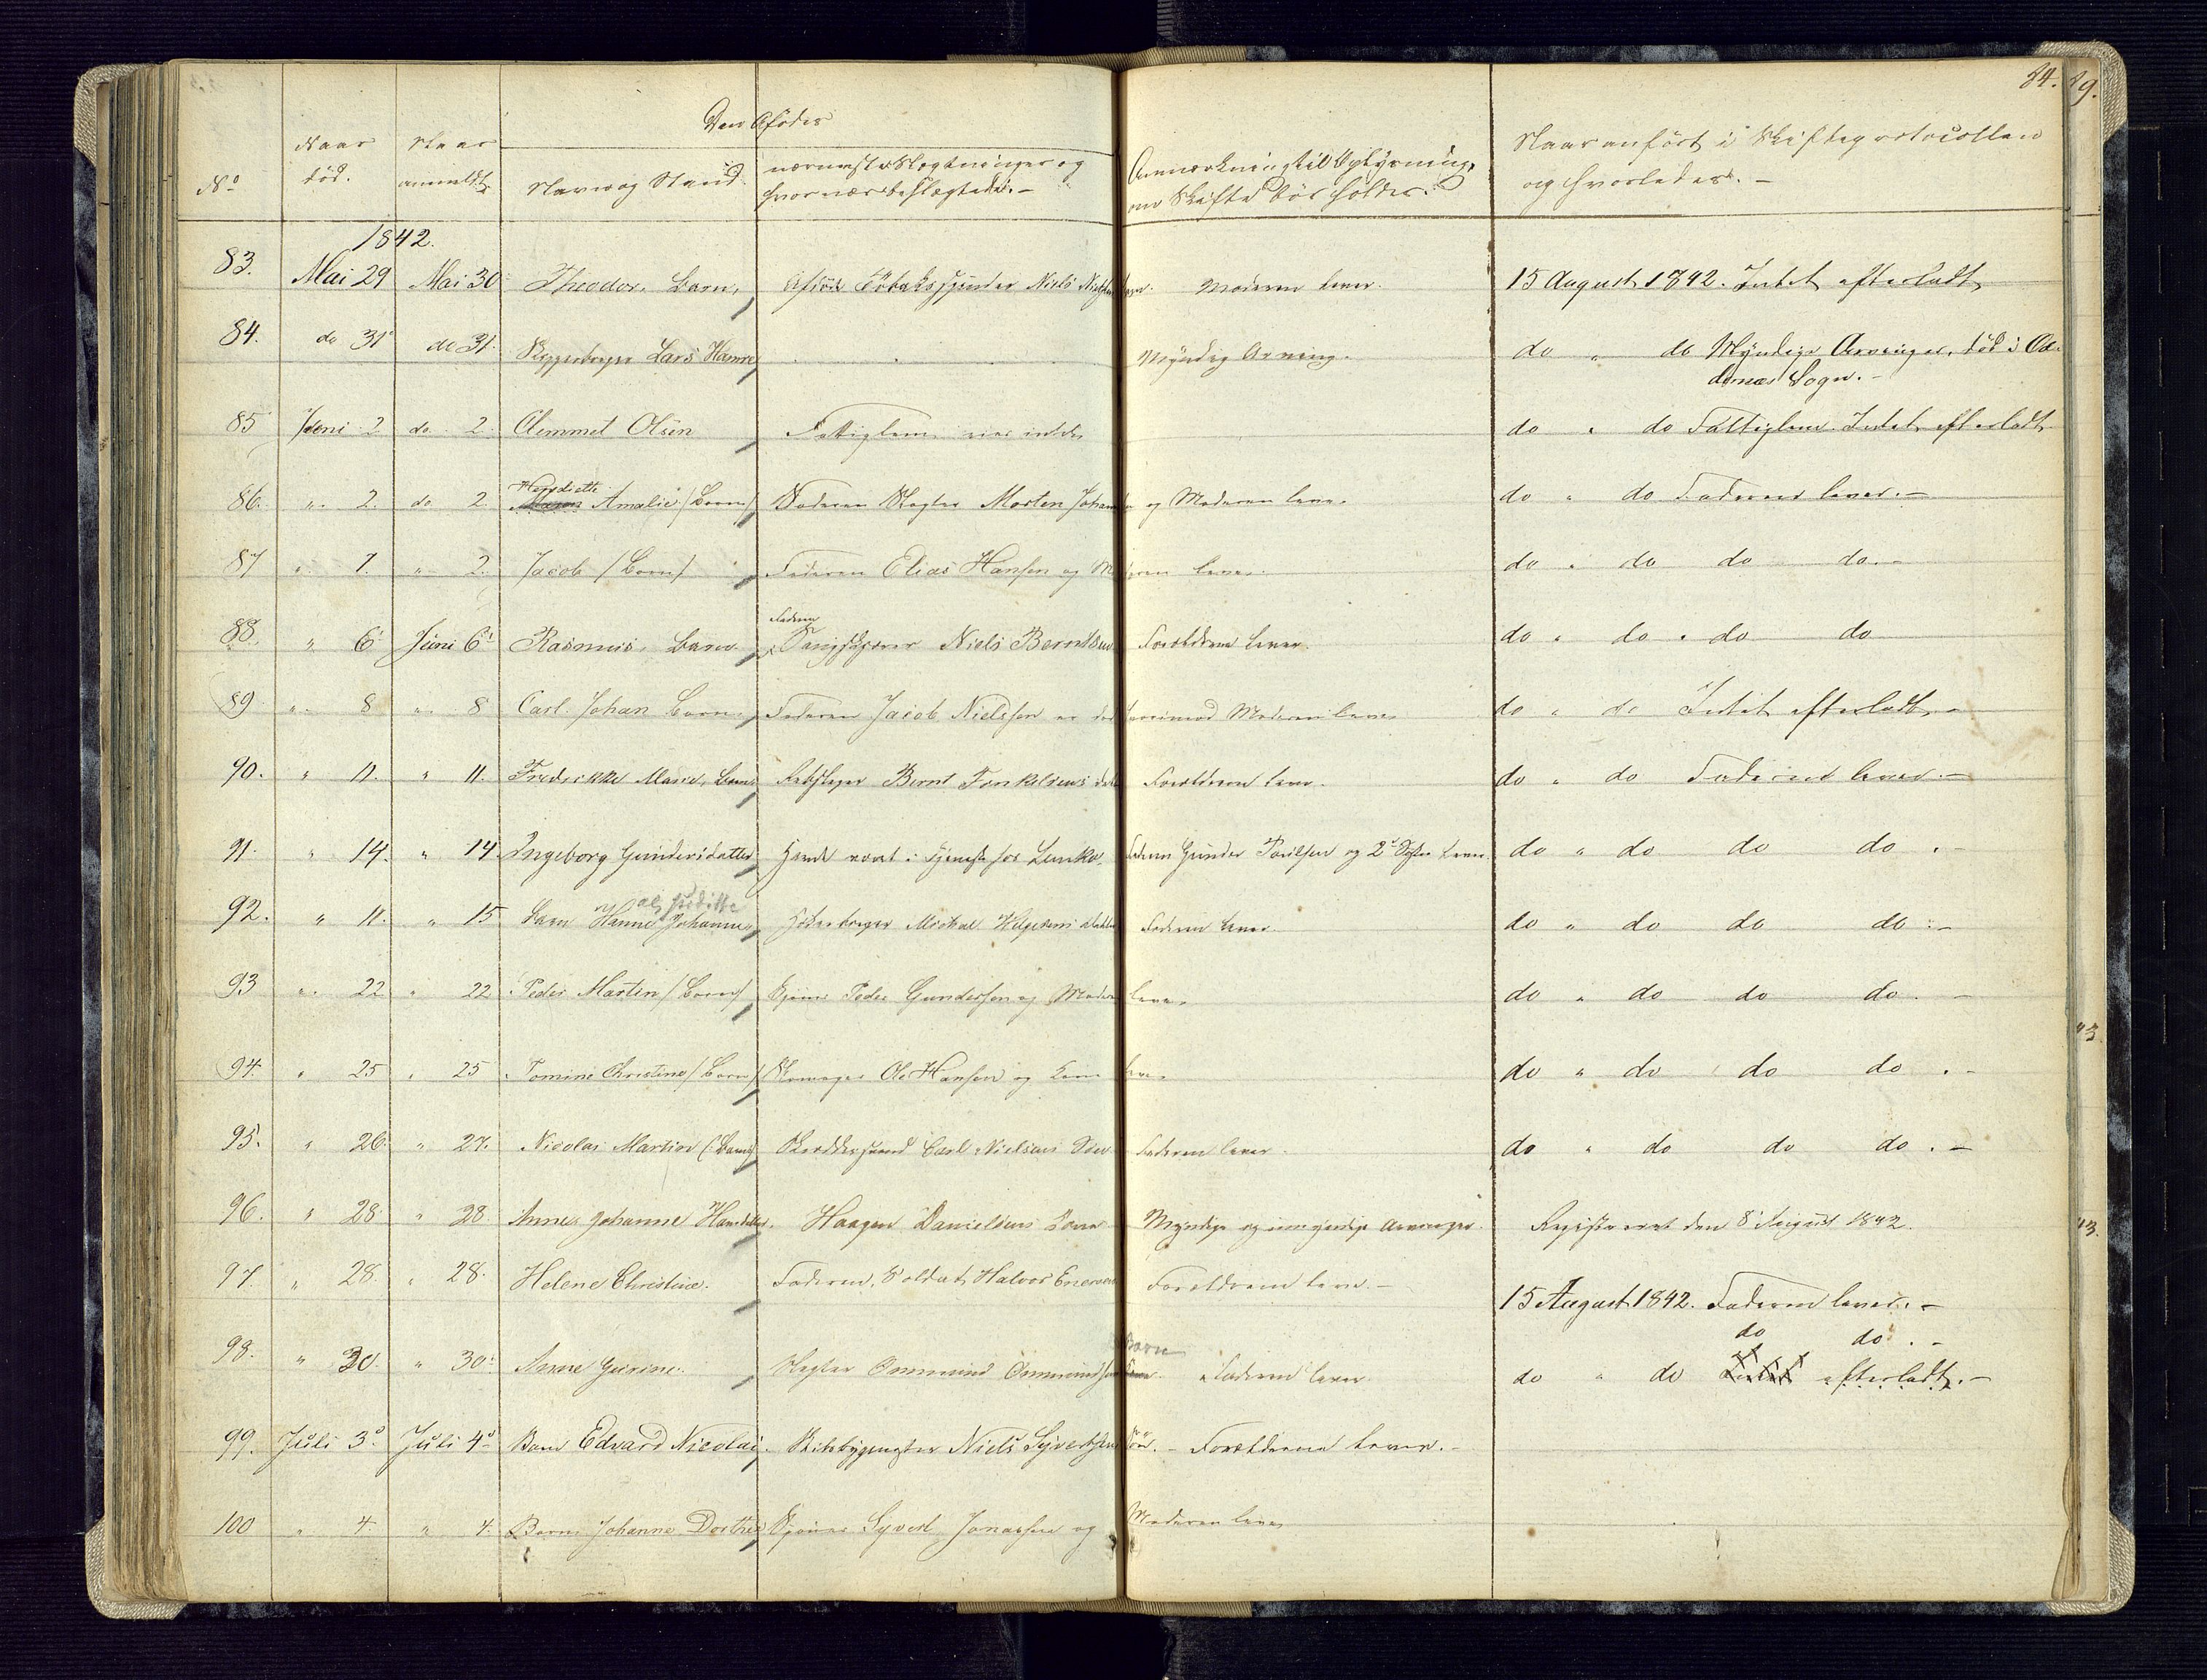 84. 89.
Den Afdødes
No
Naar død.
Naar anmeldt
Navn og Stand
nærmeste Slægtninger og
hvor nær beslægtede. -
Anmærkning til Oplysning,
om Skifte bør holdes.
Naar anført i Skifteprotocollen
og hvorledes. -
1842.
83. Mai 29 Mai 30 Theodor, Barn, Afdøde Niels Moderen lever. 15 August 1842. Intet efterladt
84. do 31 do 31. Lars Hamre Myndig Arving. do " do Myndige Arvinger, død i Od-
dernes Sogn. -
85 Juni 2 do 2. Clemmet Olsen Fattiglem eier intet do " do Fattiglem Intet efterladt
Hendriette
86. " 2. do 2 Amalie /Barn/ Faderen Morten og Moderen lever do " do Faderen lever. -
87 " 1. " 2. Jacob /Barn/ Faderen Elias Hansen og Moderen lever. do " do do do. -
Faderen
88. " 6 Juni 6 Rasmus, Barn Niels Berntsen Forældrene lever. do " do " do do
89 " 8 " 8 Carl Johan Barn Faderen Jacob Nielssen er død hvorimod Moderen lever do " do Intet efterladt. -
90. " 11. " 11. Fredrikke Marie, Barn Bernt Forældrene lever. do " do Faderen lever. -
91. " 14. " 14 Ingeborg Gundersdatter været i Tjeneste hos Faderen Gunder og 2 lever do " do do do . -
92. " 11. " 15 Barn Hanne Johanne, Michael Faderen lever. do " do do do . -
93 " 22 " 22 Peder Martin /Barn/ Peder Gundersen og Moderen lever do " do do do . -
94. " 25 " 25 Tomine Christine /Barn/ Skomager Ole Hansen og Kone lever do " do do do . -
95. " 26 " 27. Nicolai Martin (Barn) Carl Nielsens Søn Faderen lever. do " do do do . -
96. " 28 " 28 Anne Johanne Hansdatter. Haagen Danielsens Kone Myndige og umyndige Arvinger. Registreret den 8 August 1842.
97. " 28. " 28. Helene Christine. Faderen, Soldat Halvor Forældrene lever. - 15 August 1842. Faderen lever. -
Barn do do . -
98. " 30. " 30. Anne Gurine. Ommund Ommundsen Faderen lever. do " do Intet efterladt. -
99. Juli 3. Juli 4. Barn Edvard Nicolai. Niels Syvertsens Søn. - Forældrene lever. -
100 " 4 " 4. Barn Johanne Dorthea Syvert Jonassen og Moderen lever